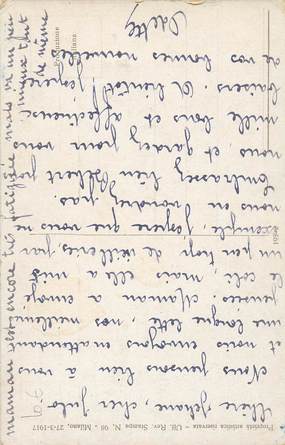 Chère Jehane, cher Jules
Nous pensons bien à vous
et nous envoyons en attendant
une longue lettre, nos meilleures
pensées. Maman a envoyé
le colis, mais elle a mis
un peu trop de vieilleries, par
exemple, j'espère que vous ne
nous en voudrez pas.
Embrassez bien Gilbert pour
nous, et gardez pour vous
mille bons et affectueux
baisers. A bientôt j'espère
de vos bonnes nouvelles
Odette
maman est encore très fatiguée mais va un peu
mieux tout
de même
Proprietà artistica riservata - Uff. Rev. Stampa N. 98 - Milano, 27-3-1917